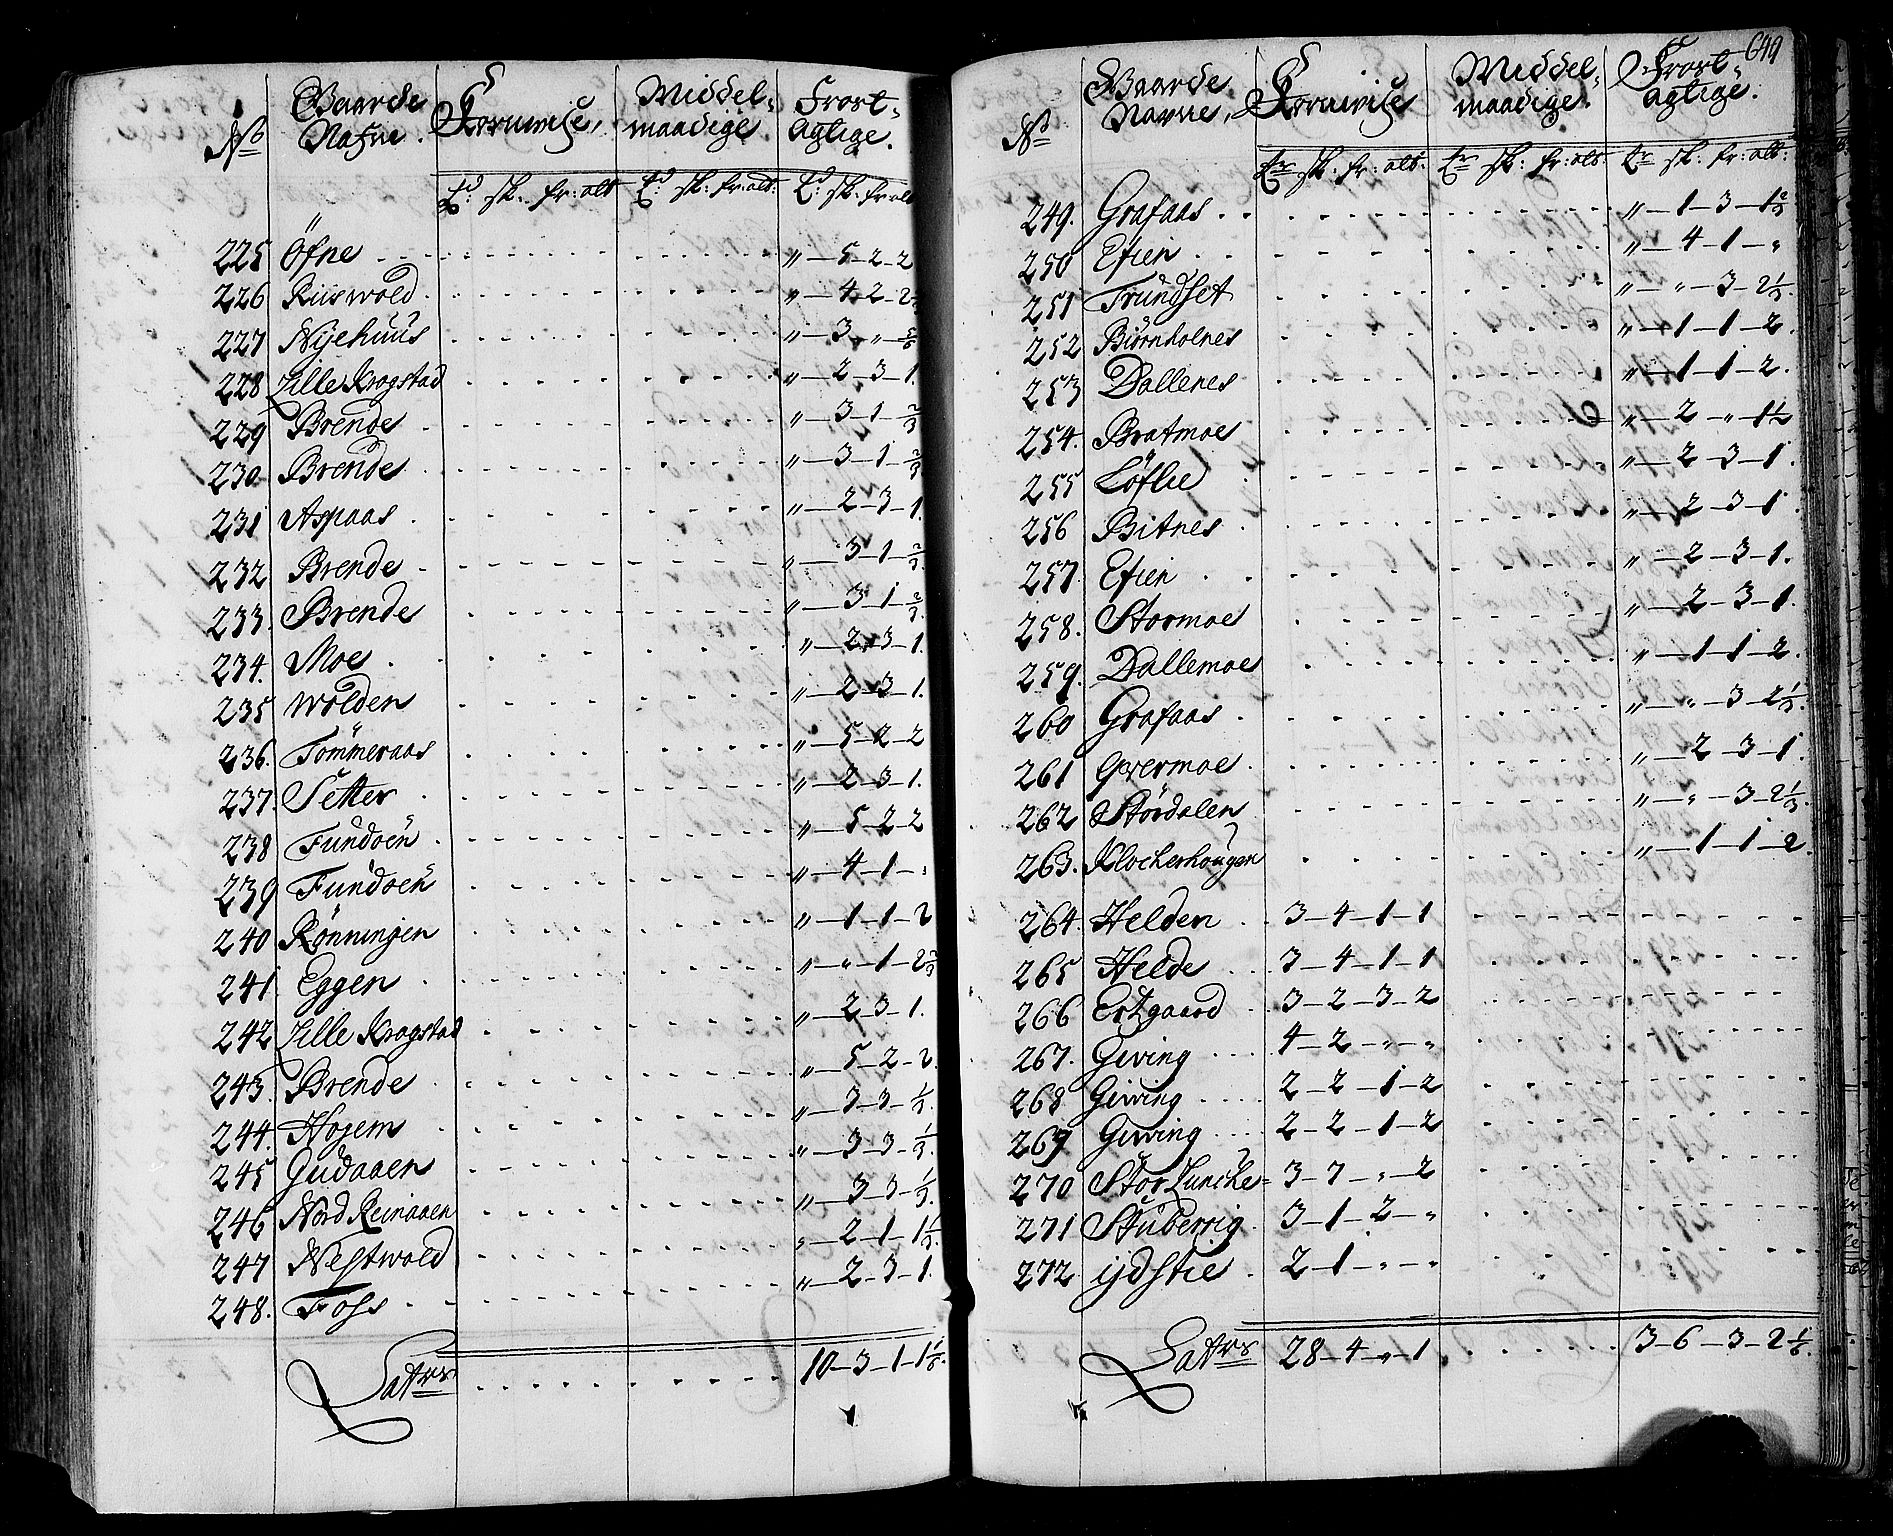 No Gaarde Nafne. Kornwiße, Middel- maadige Frost- agtige.
Td. sk. fr: alb Td. sk: fr: alb: Td. sk. fr: alb
225 Öfne " - 5 - 2 - 2
226 Riiswold " - 4 - 2 - 2
227 Nÿehuus " - 3 - " - 5/6
228 Lille Krogstad " - 2 - 3 - 1
229 Brende " - 3 - 1 - 2/3
230 Brende " - 3 - 1 - 2/3
231 Aspaas " - 2 - 3 - 1.
232 Brende " - 3 - 1 - 2/3
233. Brende " - 3 - 1 - 2/3
234. Moe " - 2 - 3 - 1.
235 Wolden " - 2 - 3 - 1.
236. Tömmeraas " - 5 - 2 - 2
237. Setter " - 2 - 3 - 1.
238 Fundoen " - 5 - 2 - 2
239 Fundoen " - 4 - 1 - "
240 Rönningen " - 1 - 1 - 2
241. Eggen " - " - 1 - 2 2/3
242 Lille Krogstad " - 2 - 3 - 1.
243. Brende " - 5 - 2 - 2
244. Hojem " - 3 - 3 - 1/3
245 Gudaaen " - 3 - 3 - 1/3.
246 Nord Reinaaen " - 3 - 3 - 1/3.
247 Nestwold " - 2 - 1 - 1 1/3
248. Foss " - 2 - 3 - 1.
Laters 10 - 3 - 1 - 1 1/6.
649
No Gaarde Navne, Kornwiße Middel- maadige. Frost- agtige.
Tr sk. fr: alb: Tr sk: fr: alb Tr sk. fr: alb:
249. Grafaas " - 1 - 3 - 1 2/3
250 Efien " - 4 - 1 - "
251 Trundset " - " - 3 - 2 1/3.
252 Biörnholnes " - 1 - 1 - 2.
253 Dallenes " - 1 - 1 - 2.
254. Bratmoe " - 2 - " - 1 1/2
255 Löflie " - 2 - 3 - 1.
256 Bitnes " - 2 - 3 - 1
257. Efien " - 2 - 3 - 1.
258. Stormoe " - 2 - 3 - 1.
259. Dallemoe " - 1 - 1 - 2.
260 Grafaas " - " - 3 - 2 1/3.
261 Gvermoe " - 2 - 3 - 1
262 Stördalen " - " - 3 - 2 1/3.
263. Klockerhougen " - 1 - 1 - 2
264. Helden 3 - 4 - 1 - 1
265 Helde 3 - 4 - 1 - 1
266 Ertzgaard 3 - 2 - 3 - 2
267. Gewing 4 - 2 - " - "
268 Giwing 2 - 2 - 1 - 2
269 Giwing 2 - 2 - 1 - 2
270 Stor Luncke 3 - 7 - " - 2
271 Stuberrig 3 - 1 - 2 - "
272 ijdstie 2 - 1 - " - "
Laters 28 - 4 - " - 1 3 - 6 - 3 - 2 1/6.